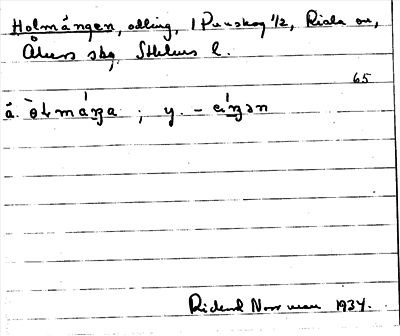 Holmängen, odling, 1 Punskog 1/2, Riala sn,
Åkers skg, Sthlms l.
65
ä. ò̵ɫmáŋa ; y. – eíŋən
Rickard Norrman 1934.